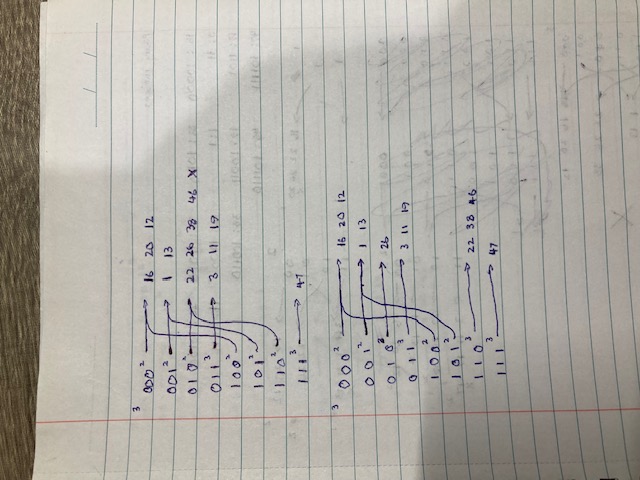 3
000² → 16 20 12
001² → 1 13
010² → 22 26 38 46 X
011³ → 3 11 19
100²
101²
110²
111³ → 47
3
000² → 16 20 12
001² → 1 13
010³ → 26
011³ → 3 11 19
100²
101²
110³ → 22 38 46
111³ → 47